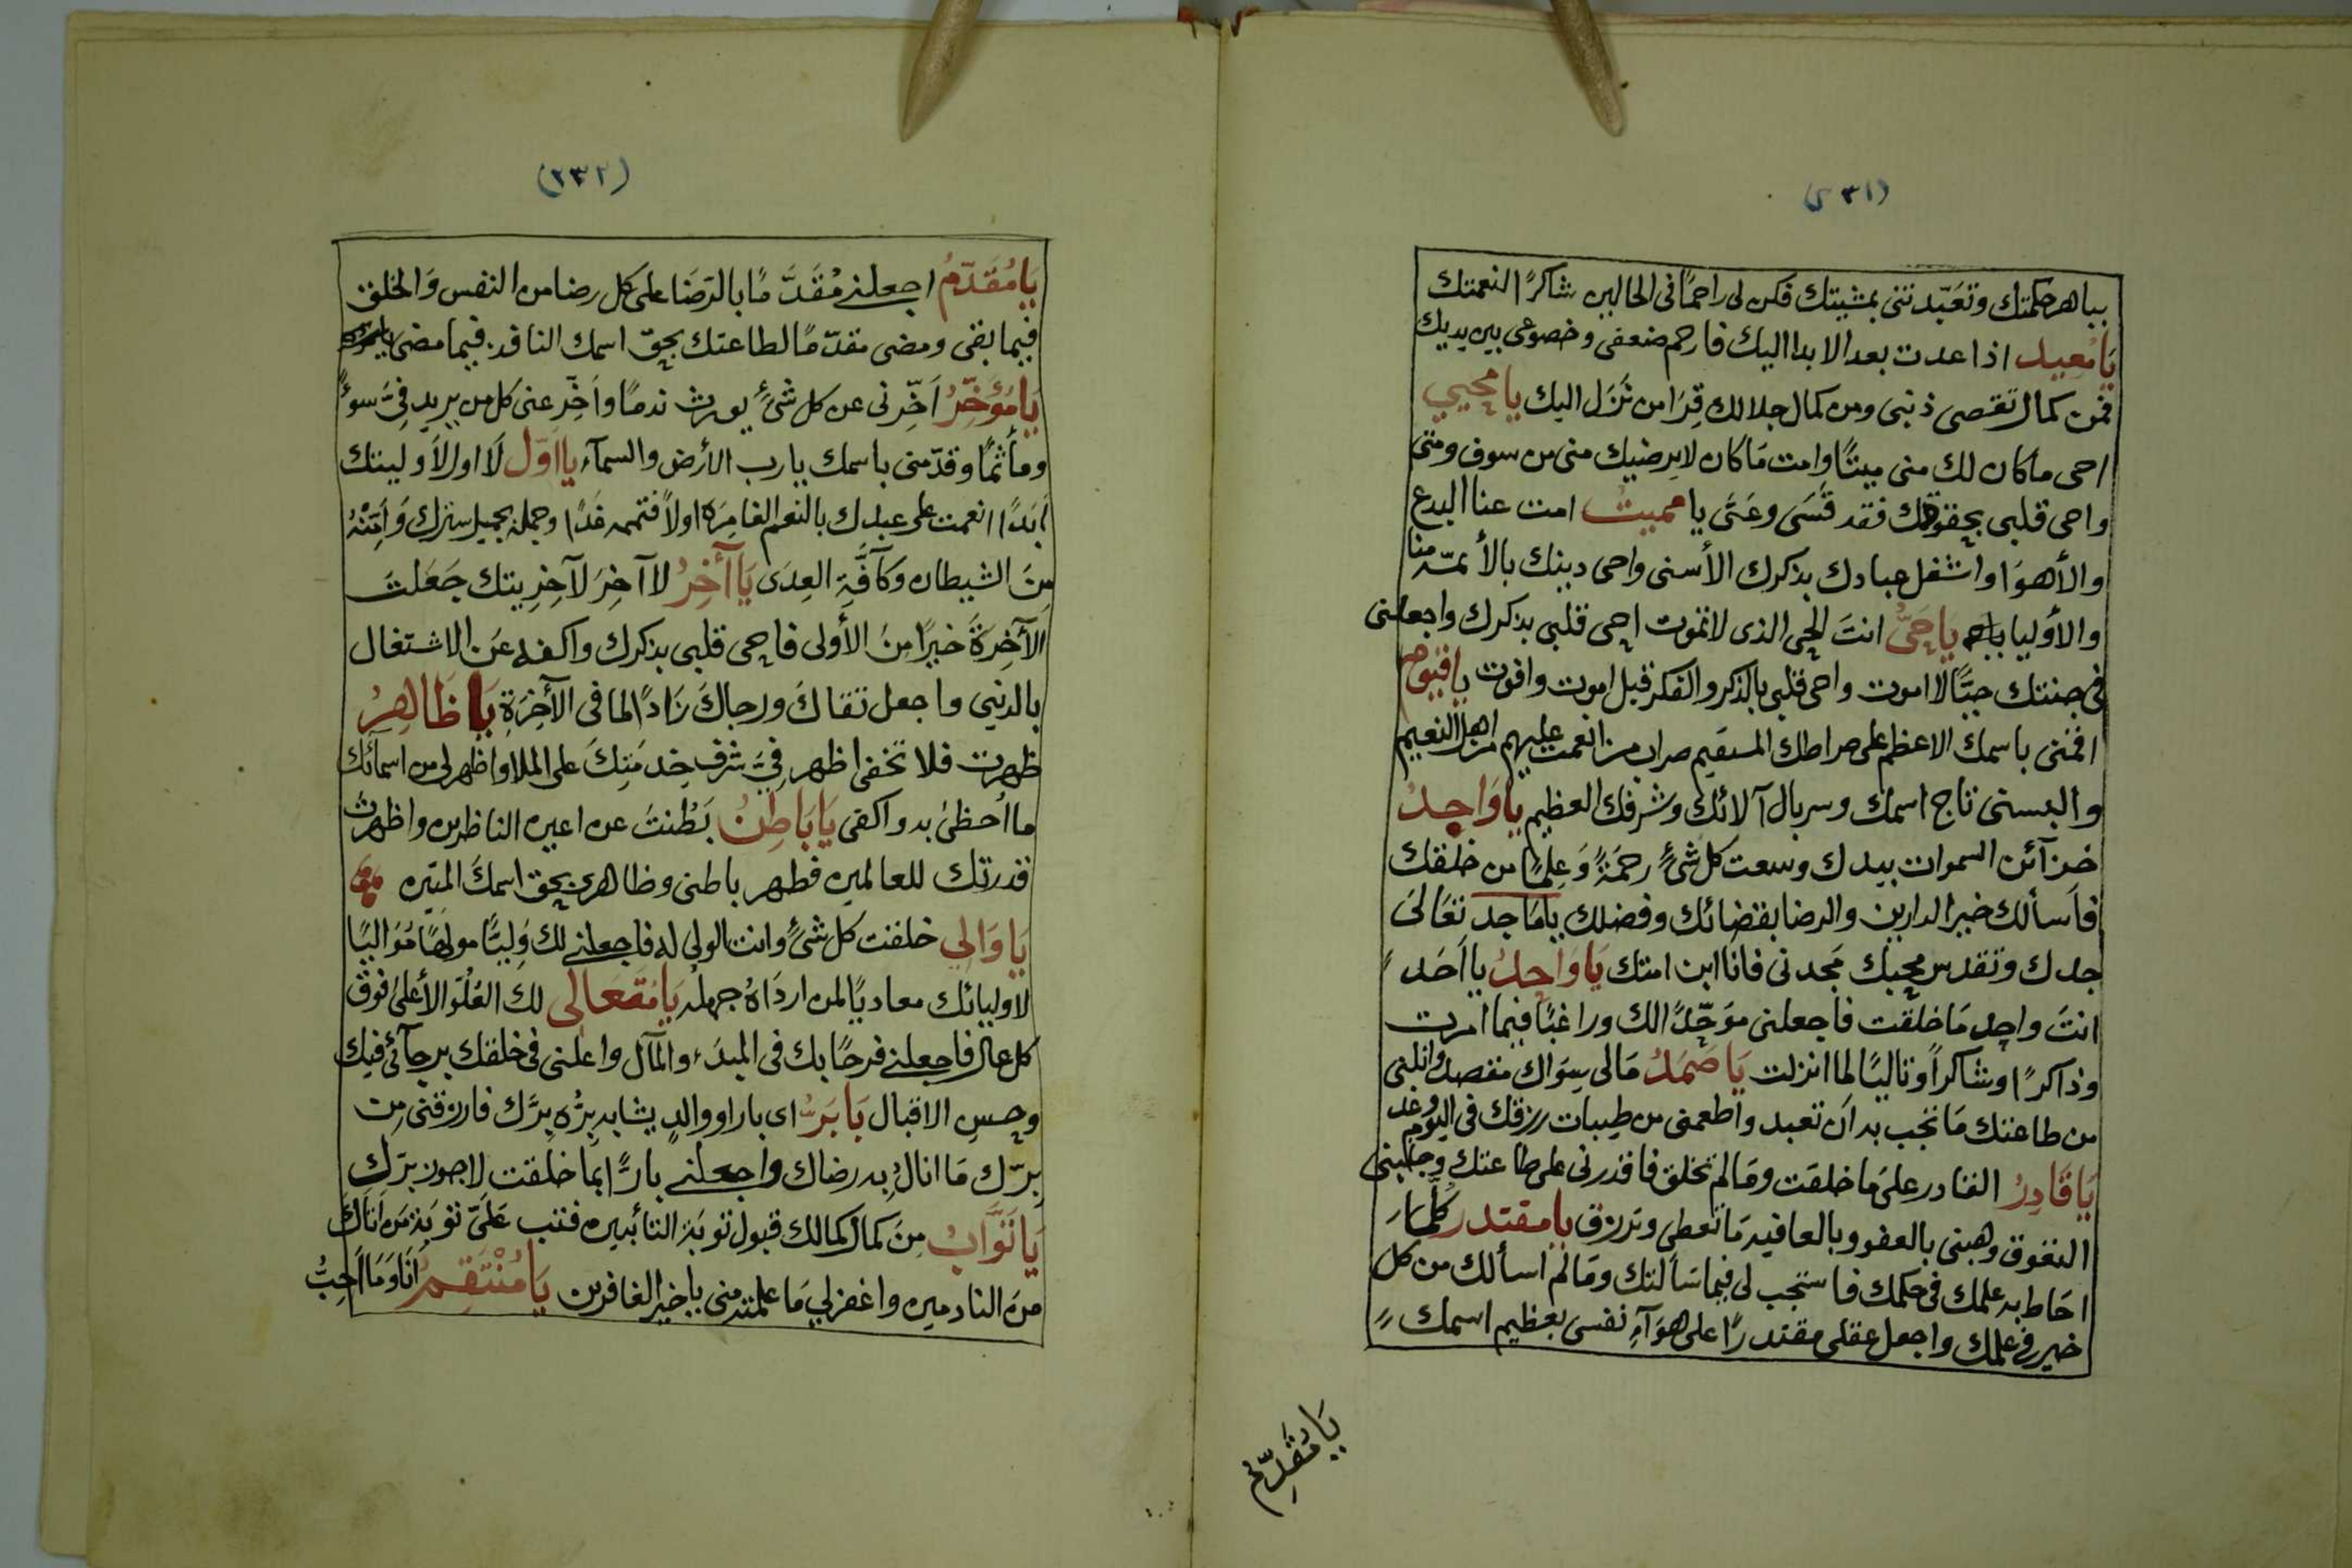 (٢٣١)
بباهر حكمتك وتعبّدتنى بمشيتك فكن لى راحمًا فى الحالين شاكرًا لنعمتك
يَا مُعِيد اذا عدت بعد الابدا اليك فارحم ضعفى وخضوعى بين يديك
فمن كمال نقصى ذنبى ومن كمال جلالك قِرَا من نَزَل اليك يا محيي
احى ماكان لك منى ميتًا وامت مَا كان لا يرضيك منى من سوف ومتى
واحى قلبى بحقوقك فقد قَسَى وعَتَى يا مميتُ امت عنا البدع
والأهوَا واشغل عبادك بذكرك الأسنى واحى دينك بالأئمّة منا
والأوليا يَا حَيُّ انتَ الحى الذى لا تموت احى قلبى بذكرك واجعلنى
فى جنتك حيًّا لا اموت واحى قلبى بالذكر والفكر قبل اموت وافوت يا قيّوم
اقمنى باسمك الاعظم على صراطك المستقيم صراط من انعمت عليهم من اهل النعيم
والبسنى تاج اسمك وسربال آلائك وشرفك العظيم يا وَاجِدُ
خزآئن السموات بيدك وسعت كل شئٍ رحمَةً وَعِلمًا من خلقك
فاَسألك خير الدارين والرضا بقضائك وفضلك يا مَاجد تعَالىَ
جدك وتقدس مجدك مَجدنى فانا ابن امتك يَا وَاحِدُ يا اَحَد
انتَ واجد مَا خلقت فاجعلنى موَحّدًا لك وراغبًا فيما امرت
وذاكرًا وشاكراً وتاليًا لما انزلت يَا صَمَدُ مَالى سِوَاك مقصد وانلنى
من طاعتك مَا تحب به اَن تعبد واطعمنى من طيبات رزقك فى اليوم وغد
يَا قَادِرُ القادر علىَ ما خلقت ومَا لم تخلق فاقدرنى على طاعتك وجنبنى
العقوق وهبنى بالعفو وبالعافيه مَا تعطى وترزق يا مقتدر كلّما
احَاط به علمك فى حكمك فاستجب لى فيما سَألتك ومَا لم اسألك من كل
خير فى علمك واجعل عقلى مقتدرًا على هوَآءِ نفسى بعظيم اسمك
يَا مُقَدِّم
(٢٣٢)
يَا مُقَدّمُ اجعلنى مُقَدَّمًا بالرّضَا على كل رضا من النفس وَالخلق
فيما بقى ومضى مقدّمًا لطاعتك بحقّ اسمك النافذ فيما مضى
يَا مُؤَخّرُ اَخّرنى عن كل شئٍ يورث ندمًا واَخِّر عنى كل من يريد فىَّ سوءً
ومأثمًا وقدّمنى باسمك يا رب الأرض والسمآء يا اَوّل لاَ اول لأوليتك
اَبَدًا انعمت على عبدك بالنعم الغامِرَه اولاً فتممه غَدًا وجمله بجميل سترك وَاَمِّنْهُ
مِنَ الشيطان وَكآفَّةِ العِدَى يَا آخِرُ لا آخِرَ لآخِرِيتك جَعَلتَ
الآخِرَةَ خيرًا مِنَ الأُولى فاحى قلبى بذكرك واكفه عَن الاشتغال
بالدنيى واجعل تقاكَ ورجاكَ زَادًا لما فى الآخِرَةِ يَا ظَاهِرُ
ظهرت فلا تخفى اظهر فىَّ شرف خِدمَتِكَ على الملا واظهر لى من اسمآئك
ما اُحظىَ به واكفى يَا بَاطِنُ بَطُنتَ عن اعين الناظرين واظهرتَ
قدرتك للعالمين فطهر باطنى وظاهرى بحق اسمكَ المتين
يَا وَالِي خلقت كل شئٍ وانت الولى له فاجعلنى لك وَلِيًّا مولهًا مُوَاليًا
لاوليائك معاديًا لمن اردَاهُ جهلُه يَا مُتَعَالِى لك العُلُوّ الأعلىَ فوق
كل عال فاجعلنى فرحًا بك فى المبدَء والمآل واعلنى فى خلقك برجآئى فيك
وحسن الاقبال يَا بَرُّ اى بار او والدٍ يشابه بِرُّه بِرَّك فارزقنى مِن
بِرّك مَا انالُ به رضاك واجعلنى بارًّا بما خلقت لاحوز برّك
يَا تَوَّابُ مِنَ كمال كمالك قبول توبَة التائبين فتب عَلَىّ توبَة مَن اَتَاكَ
منَ النادمين واغفر لي مَا علمته منى يا خير الغافرين يَا مُنْتَقِمُ اَنَا وَمَا اُحِبُّ